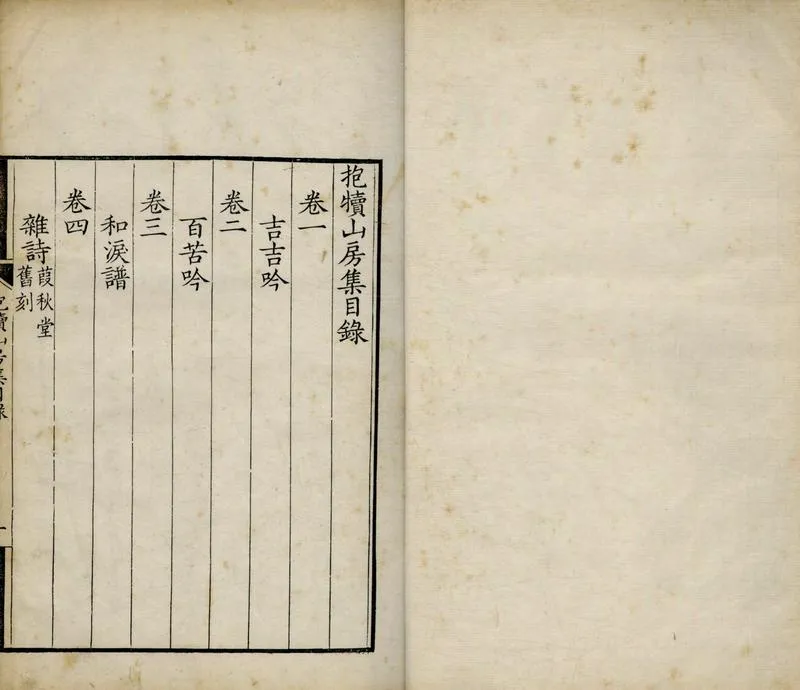 抱犢山房集目錄
卷一
吉吉吟
卷二
百苦吟
卷三
和淚譜
卷四
雜詩葭秋堂
舊刻
抱犢山房集目錄
一